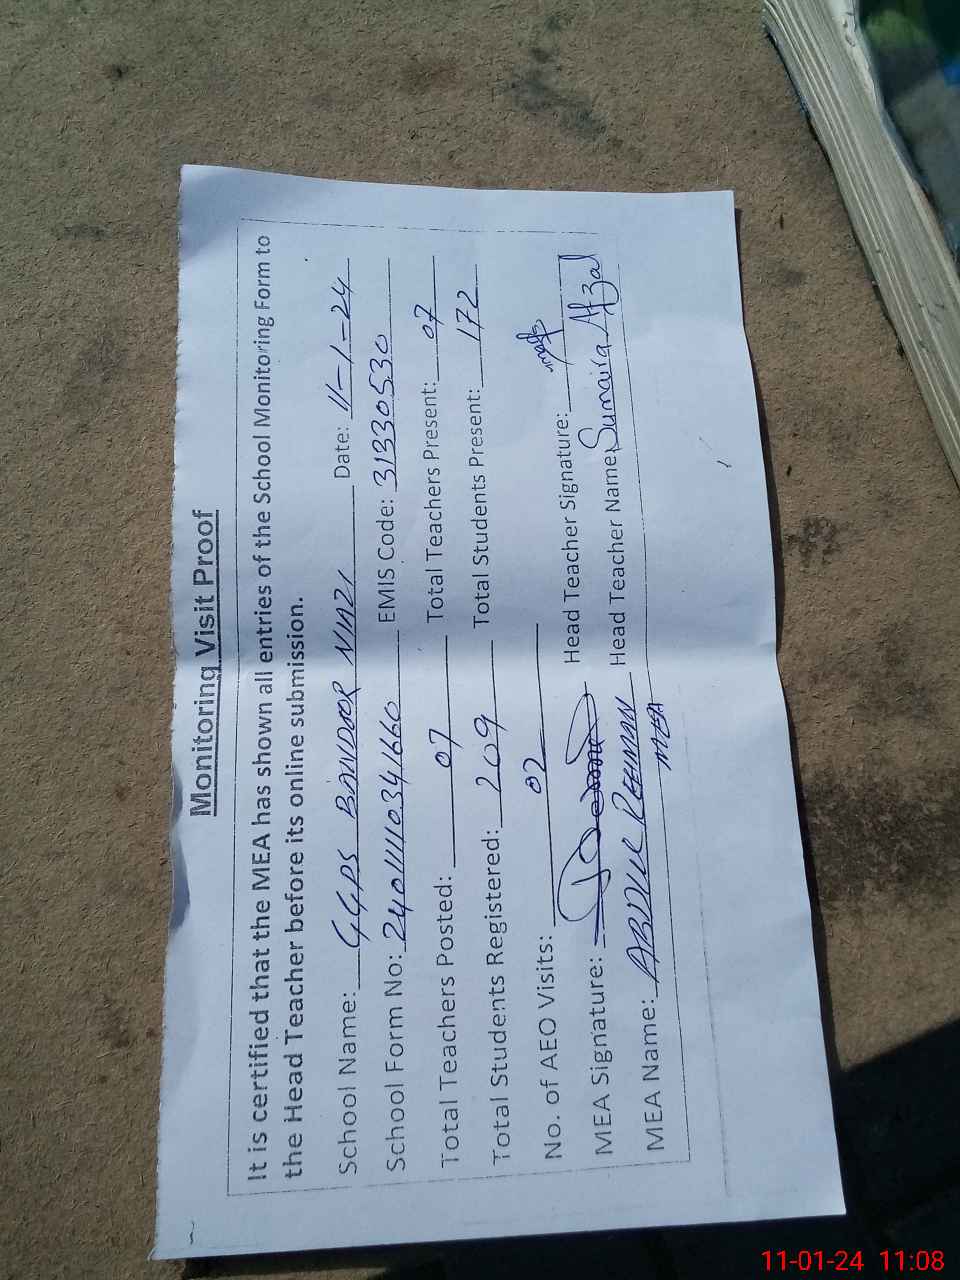 Monitoring Visit Proof
It is certified that the MEA has shown all entries of the School Monitoring Form to
the Head Teacher before its online submission.
School Name: GGPS BANDOR NIAZI Date: 11-1-24
School Form No: 24011110341660 EMIS Code: 31330530
Total Teachers Posted: 07 Total Teachers Present: 07
Total Students Registered: 209 Total Students Present: 172
No. of AEO Visits: 02
MEA Signature: Head Teacher Signature:
MEA Name: ABDUL REHMAN Head Teacher Name: Sumaira Afzal
MEA
11-01-24 11:08